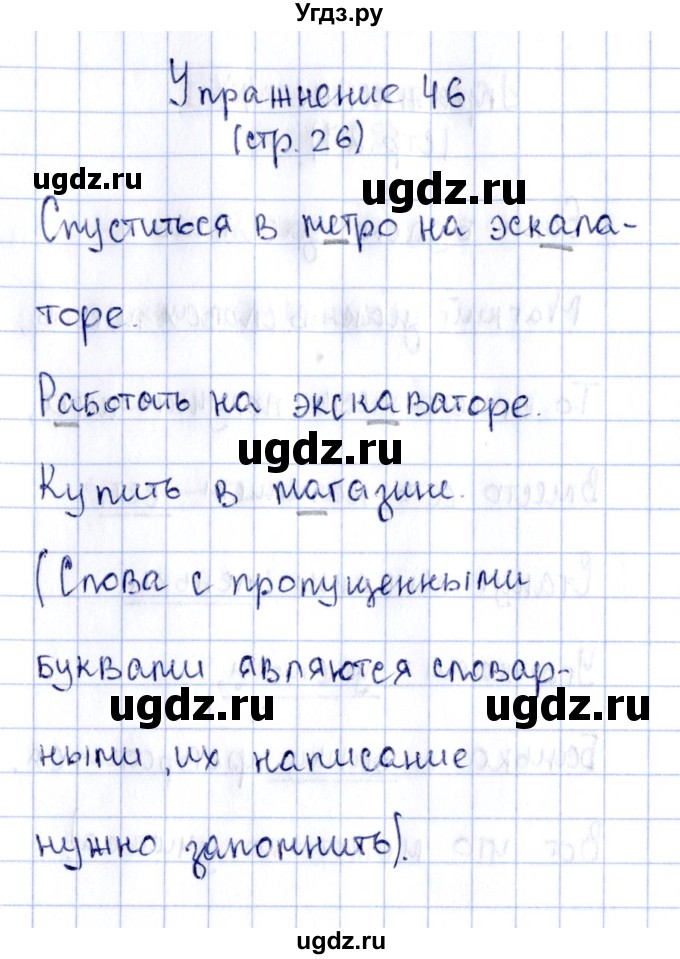 Угдз.ру
Упражнение 46
(стр. 26)
ugdz.ru
ugdz.ru
Спуститься в метро на эскала-
торе.
ugdz.ru
Работать на экскаваторе.
ugdz.ru
Купить в магазине.
(Слова с пропущенными
буквами являются словар-
ugdz.ru
ugdz.ru
ными, их написание
нужно запомнить).
ugdz.ru